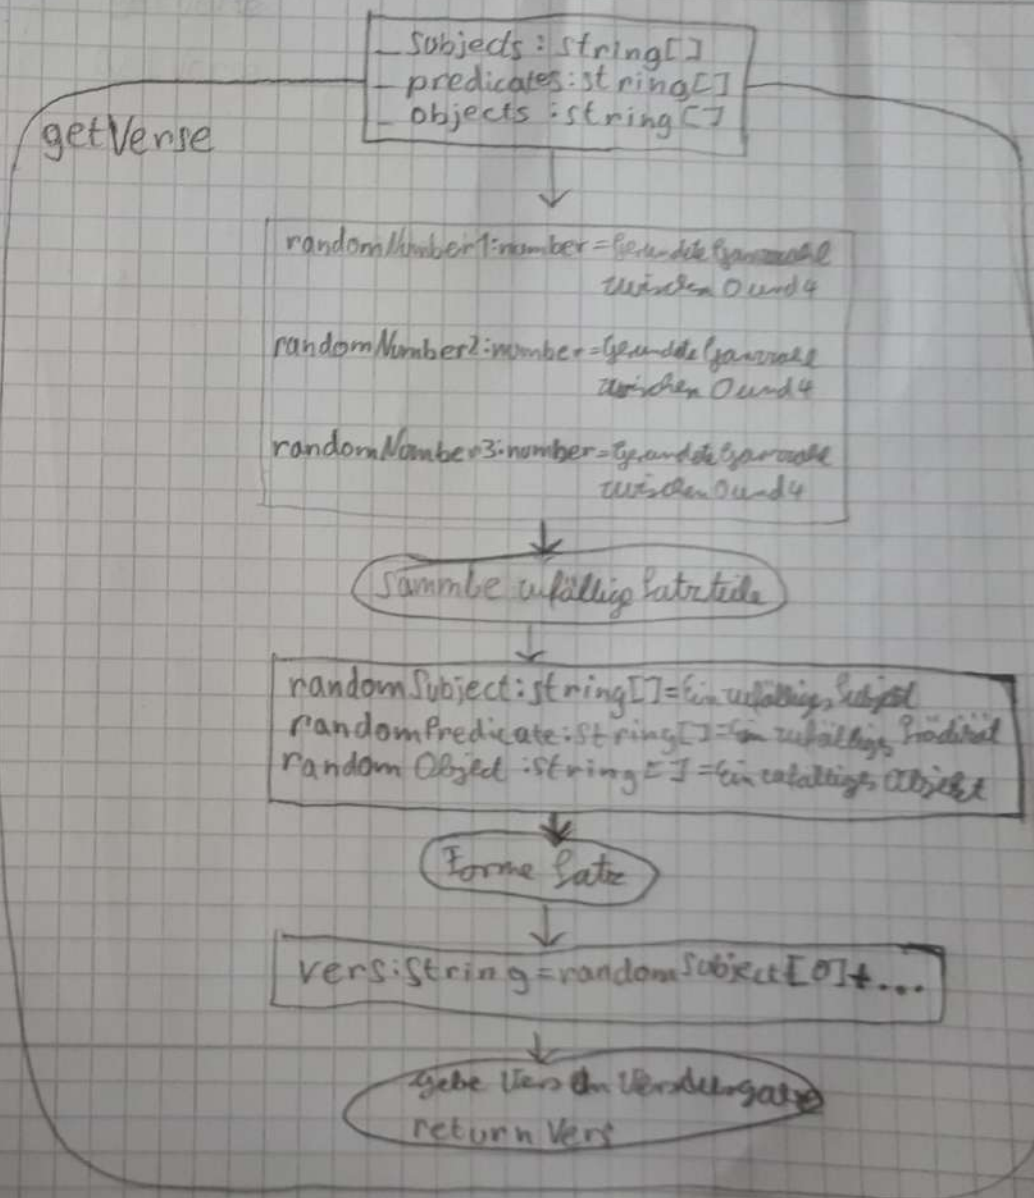 - subjects : string[]
- predicates: string[]
- objects : string[]
getVerse
randomNumber1:number = Gerundete Ganzzahl
zwischen 0 und 4
randomNumber2:number = Gerundete Ganzzahl
zwischen 0 und 4
randomNumber3:number = Gerundete Ganzzahl
zwischen 0 und 4
Sammle zufällig Satzteile
randomSubject:string[]=Ein zufälliges Subjekt
randomPredicate:string[]=Ein zufälliges Prädikat
randomObject :string[]=Ein zufälliges Objekt
Forme Satz
vers:String=randomSubject[0]+...
gebe Vers
return Vers